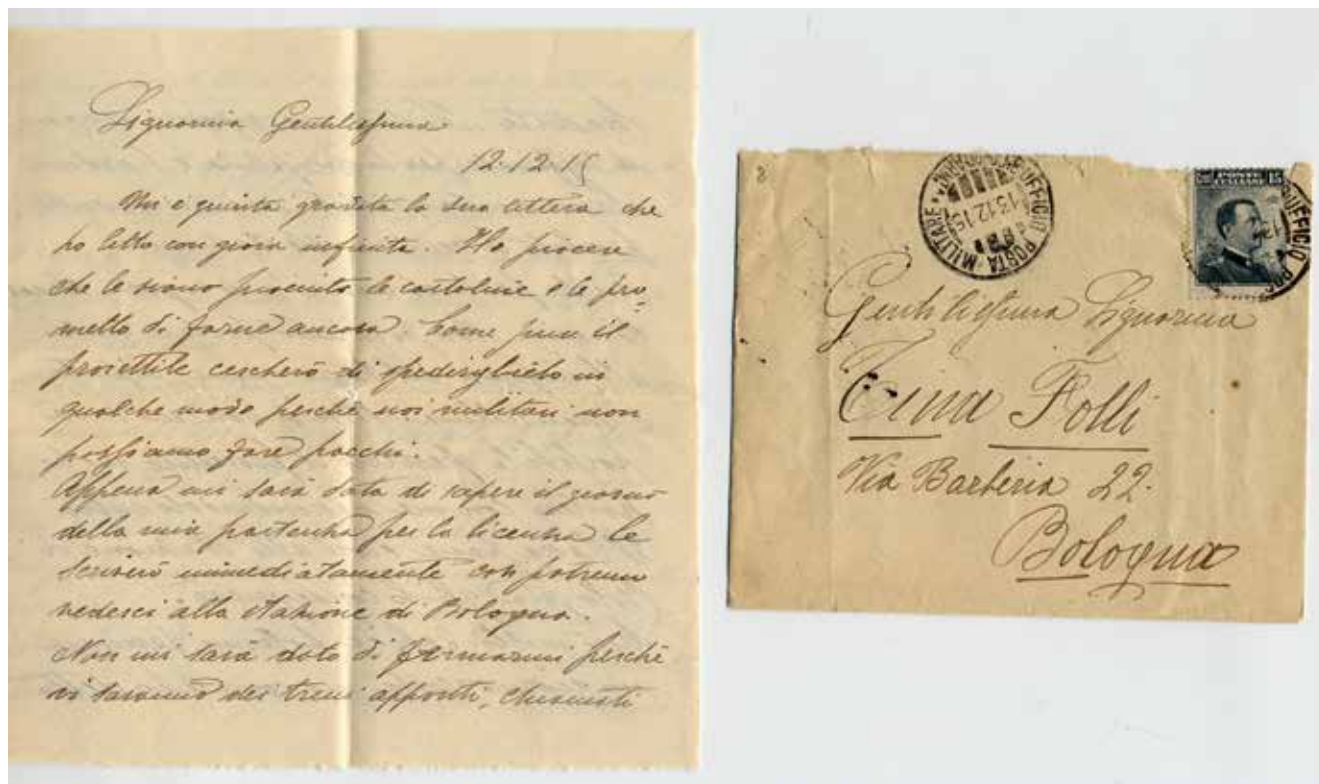 Signorina Gentilissima
12-12-15
Mi è giunta gradita la sua lettera che
ho letto con gioia infinita. Ho piacere
che le siano piaciute le cartoline e le pro-
metto di farne ancora. Come pure il
proiettile cercherò di spedirglielo in
qualche modo perchè noi militari non
possiamo fare pacchi.
Appena mi sarà dato di sapere il giorno
della mia partenza per la licenza le
scriverò immediatamente così potremo
vederci alla stazione di Bologna.
Non mi sarà dato di fermarmi perchè
vi saranno dei treni appositi, chiamati
8
UFFICIO POSTA MILITARE
13.12.15
POSTE ITALIANE
15
UFFICIO POS
Gentilissima Signorina
Tina Folli
Via Barberia 22.
Bologna